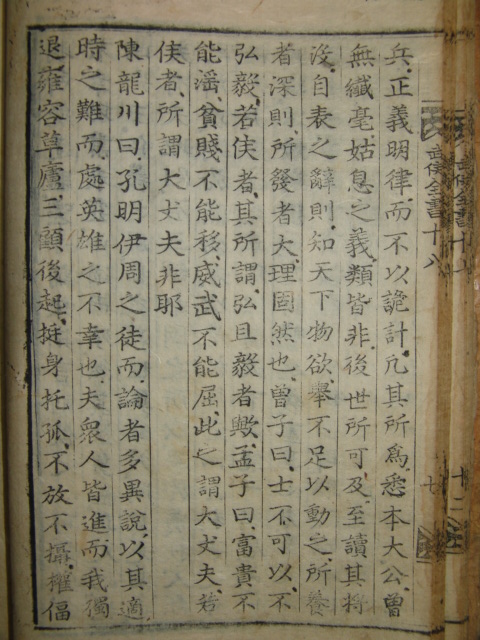 兵正義明律而不以詭計凡其所爲悉本大公曾
無纖毫姑息之義類皆非後世所可及至讀其將
沒自表之辭則知天下物欲舉不足以動之所養
者深則所發者大理固然也曾子曰士不可以不
弘毅若侯者其所謂弘且毅者歟孟子曰富貴不
能滛貧賤不能移威武不能屈此之謂大丈夫若
侯者所謂大丈夫非耶
陳龍川曰孔明伊周之徒而論者多異說以其適
時之難而處英雄之不幸也夫衆人皆進而我獨
退雍容草廬三顧後起挺身托孤不放不攝權偪